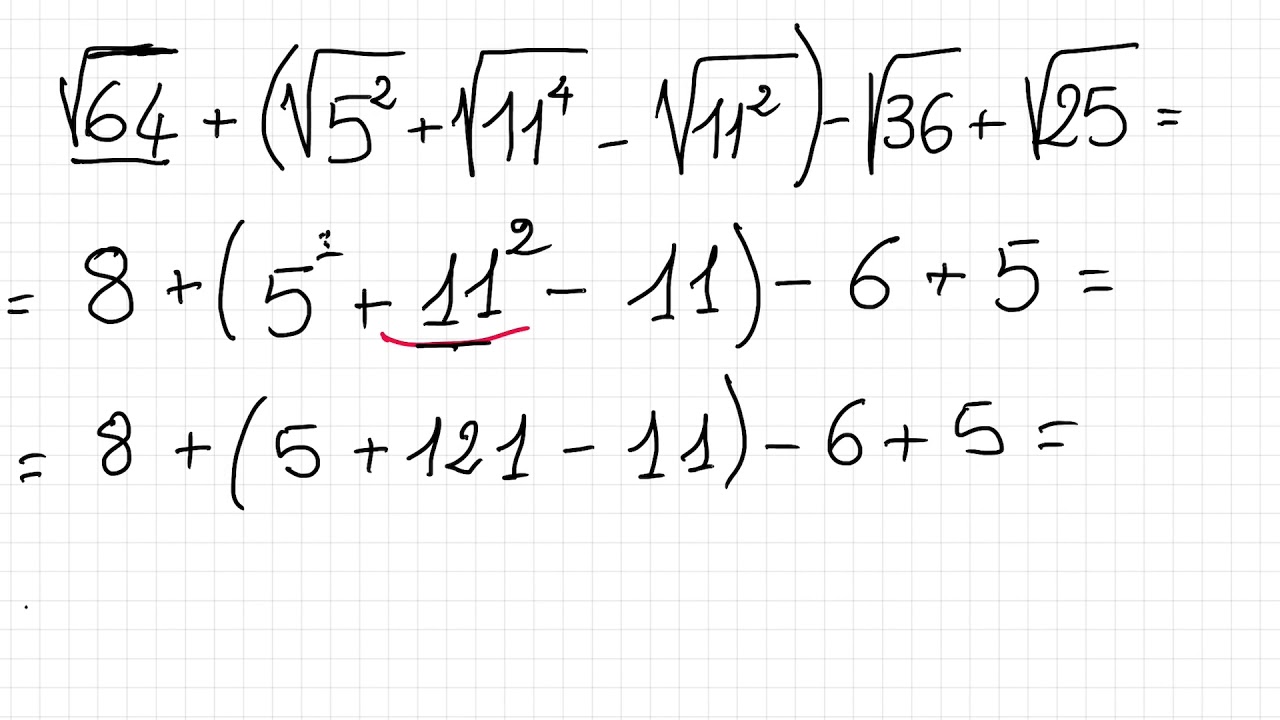 √64 + (√5² + √11⁴ - √11²) - √36 + √25 =
= 8 + (5 + 11² - 11) - 6 + 5 =
= 8 + (5 + 121 - 11) - 6 + 5 =